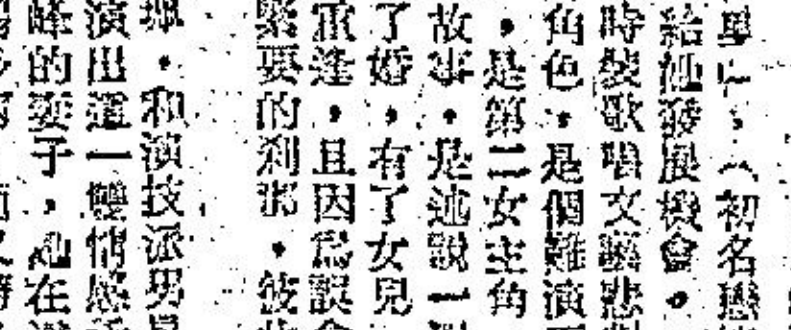 單﹂，︵初名戀
給她發展機會。
時裝歌唱文藝悲劇
角色，是個難演
，是第二女主角
故事，是述說一
了婚，有了女兒
重逢，且因爲誤會
緊要的刹那，彼
和演技派男
演出這一雙情感
峰的妻子，她在